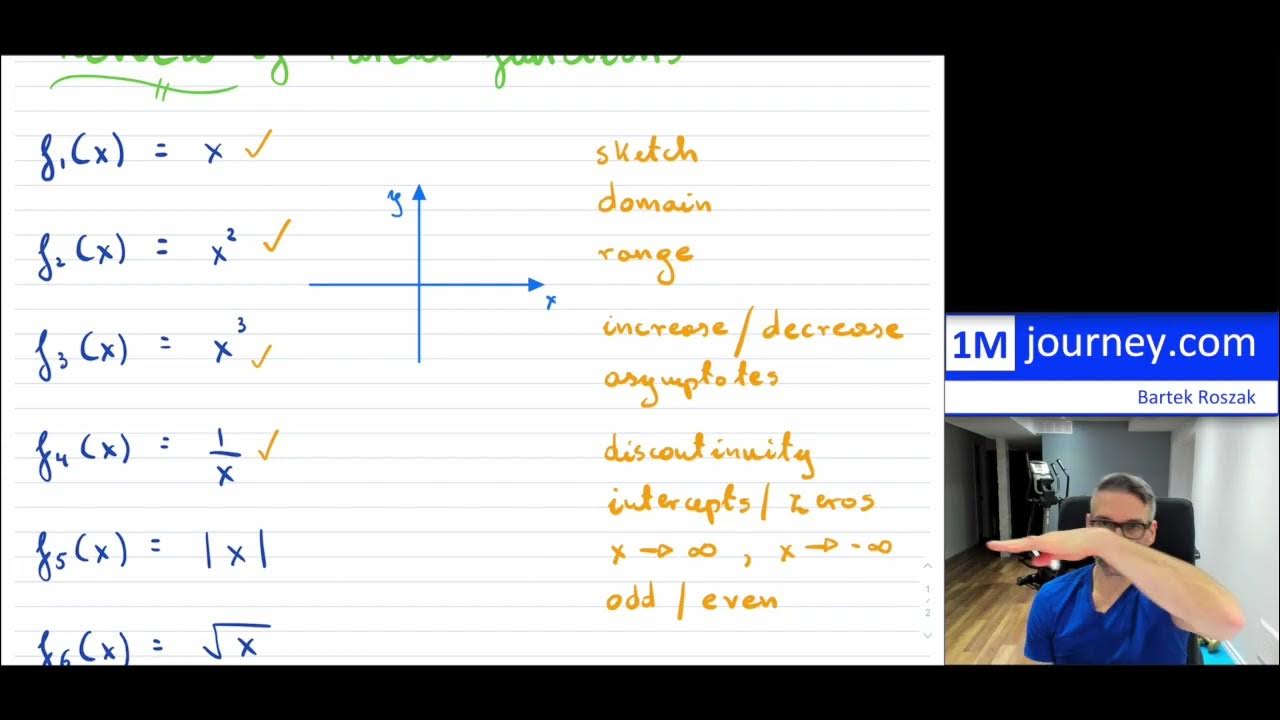 Review of Parent functions
f₁(x) = x ✓
f₂(x) = x² ✓
f₃(x) = x³ ✓
f₄(x) = 1/x ✓
f₅(x) = |x|
f₆(x) = √x
y
x
sketch
domain
range
increase / decrease
asymptotes
discontinuity
intercepts / zeros
x → ∞ , x → -∞
odd / even
1
/
2
1M journey.com
Bartek Roszak